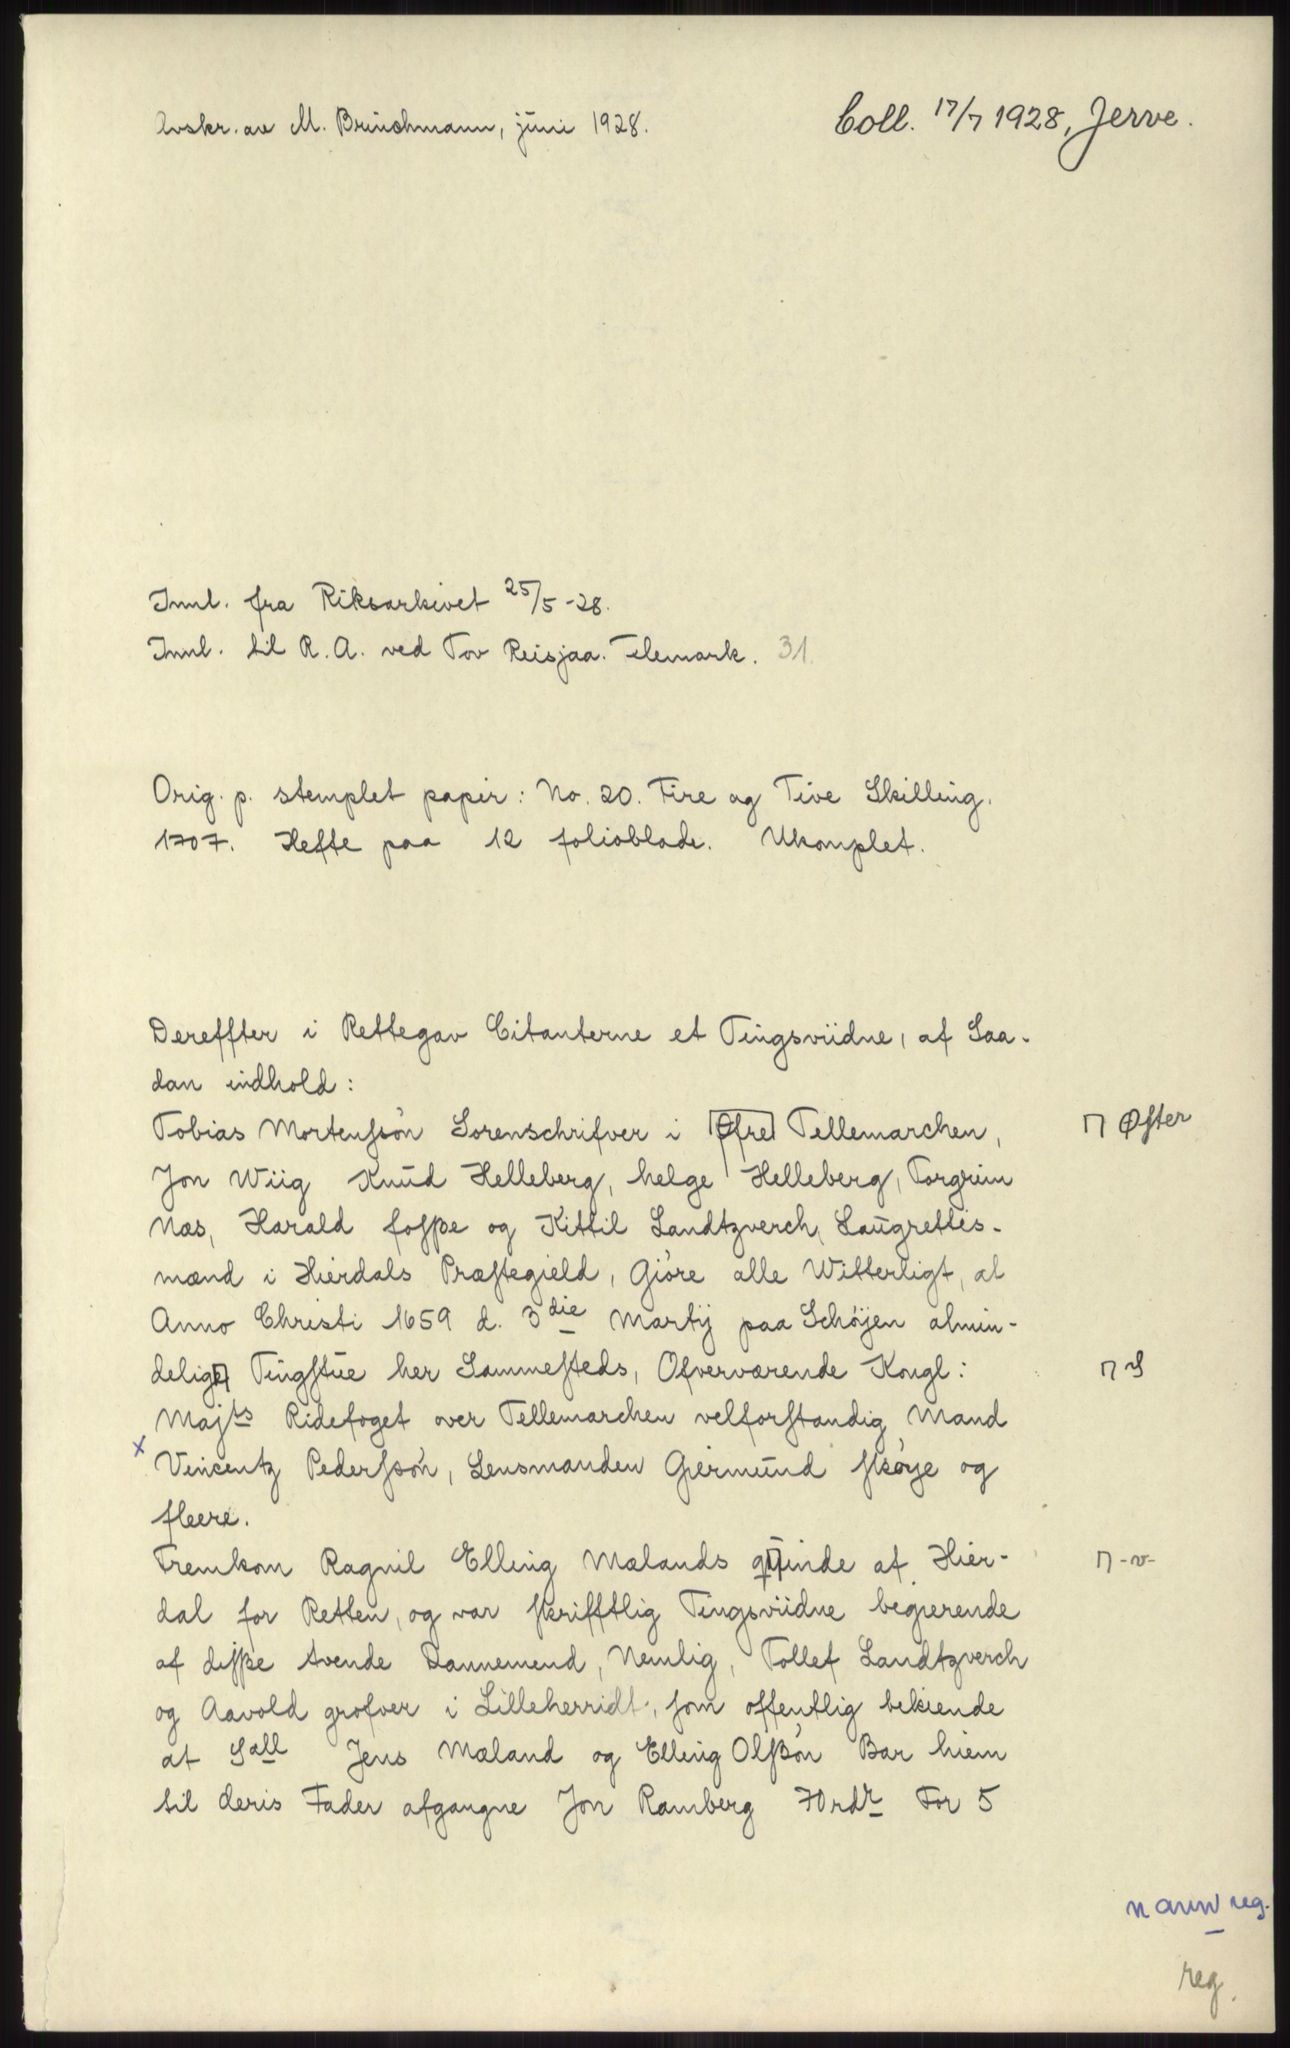 Avskr. av M. Brinchmann, juni 1928.
Coll. 17/7 1928, Jerve.
Innl. fra Riksarkivet 25/5-28.
Innl. til R.A. ved Tov Reisjaa. Telemark. 31
Orig. p. stemplet papir: No. 20. Fire og Tive Skilling.
1707. Hefte paa 12 folioblade. Ukomplet.
Dereffter i Rettegav Citanterne et Tingsviidne, af Saa-
dan indhold:
Tobias Mortensøn Sorenschrifver i Øfre Tellemarchen, ⊓ Øfter
Jon Wiig Knud Helleberg, helge Helleberg, Torgrim
Næs, Harald fosse og Kittil Landtzverch, Laugrettis-
mænd i Hierdals Præstegield, Giøre alle Witterligt, at
Anno Christi 1659 d. 3die Martij paa Schøjen almin-
delige Tingstue her Sammesteds, Ofverværende Kongl: ⊓ s
Majts Ridefoget over Tellemarchen velforstandig Mand
x Vincentz Pedersøn, Lensmanden Giermund skøye og
fleere.
Fremkom Ragnil Elling Mælands quinde af Hier- ⊓ -v-
dal for Retten, og var skrifftlig Tingsviidne begierende
af disse tvende Dannemend, Nemlig, Tollef Landtzverch
og Aavold grofver i Lilleherridt, som offentlig bekiende
at Sall Jens Mæland og Elling Olssøn Bar hiem
til deris Fader afgangne Jon Ramberg 70 rdr For 5
navnreg.
reg.